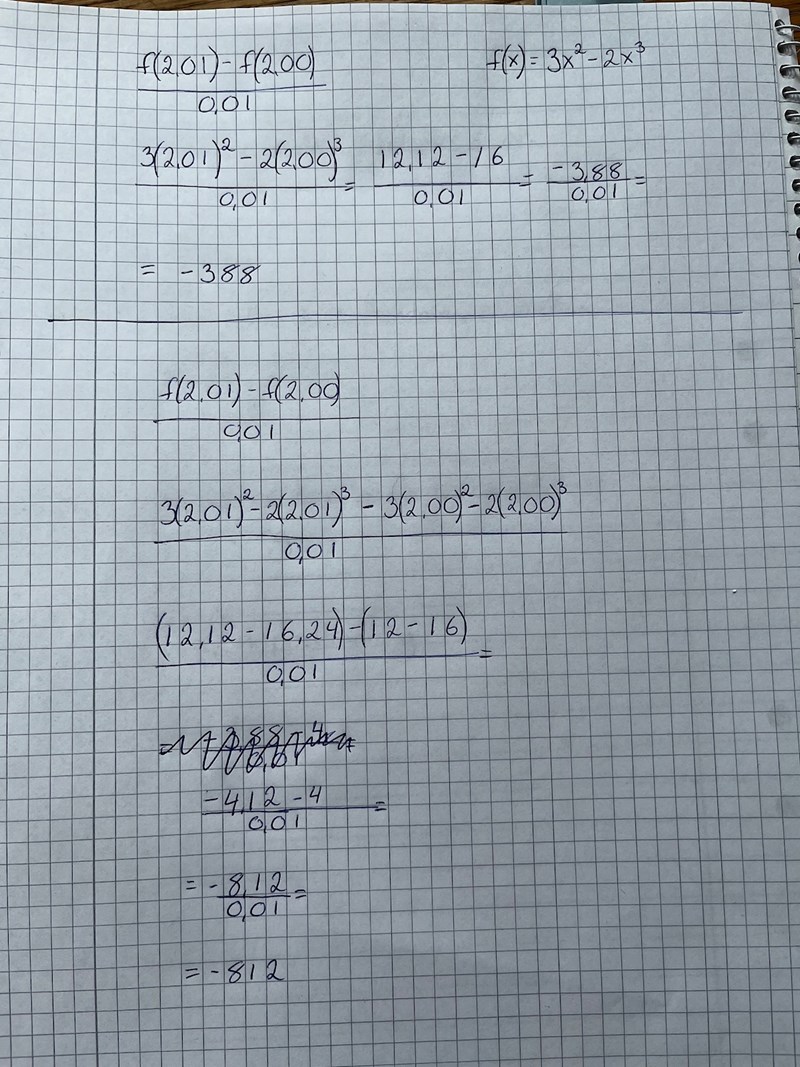 f(2,01) - f(2,00)
0,01
f(x) = 3x² - 2x³
3(2,01)² - 2(2,00)³
0,01
=
12,12 - 16
0,01
=
-3,88
0,01
=
= -388
f(2,01) - f(2,00)
0,01
3(2,01)² - 2(2,01)³ - 3(2,00)² - 2(2,00)³
0,01
(12,12 - 16,24) - (12 - 16)
0,01
=
-4,12 - 4
0,01
=
= -8,12
0,01
=
= -812